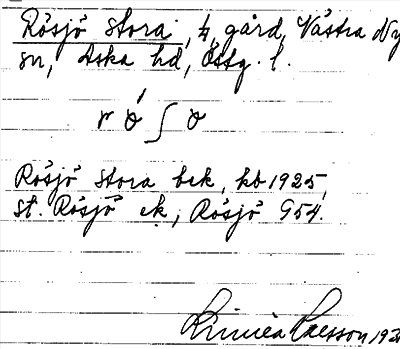 Rösjö Stora, ¼, gård, Västra Ny
sn, Aska hd, Östg. l.
Rösjö Stora bek, kb 1925,
St. Rösjö ek, Rösjö G54.
Linnéa Larsson 192